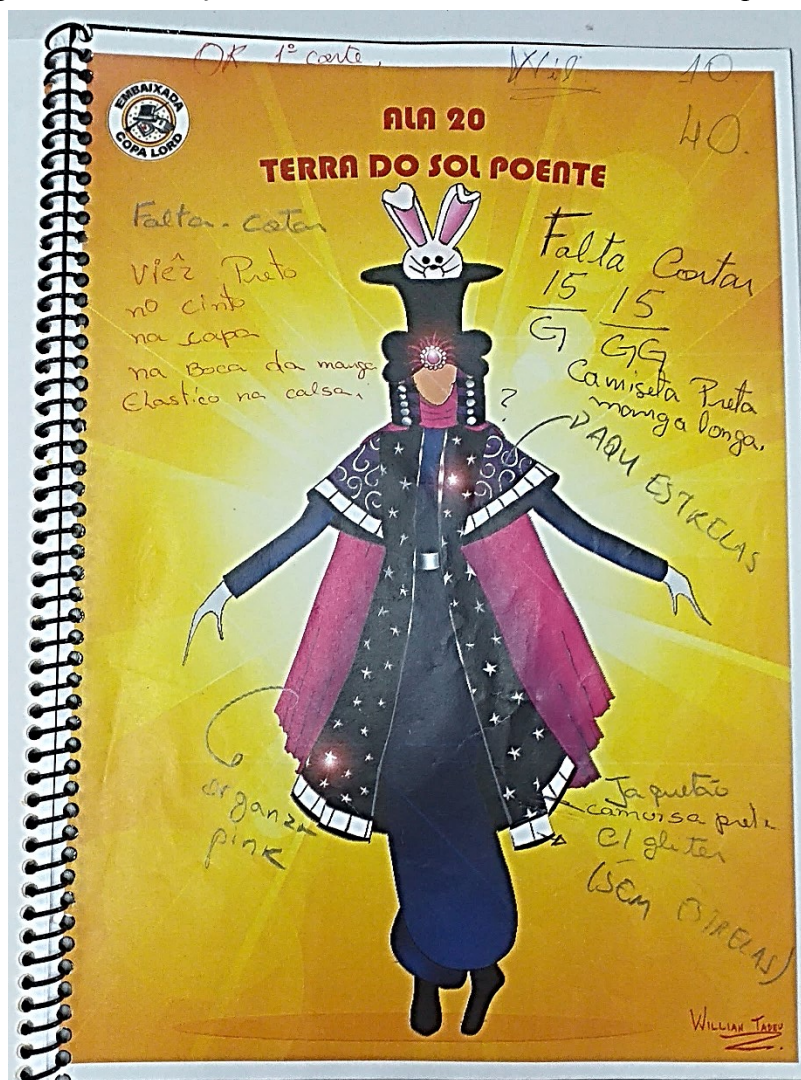 OK 1º corte,
Wil
10
40.
EMBAIXADA
COPA LORD
ALA 20
TERRA DO SOL POENTE
Falta-cotar
Viêz Preto
no cinto
na capa
na Boca da manga
Elastico na calsa,
Falta Cortar
15 15
G GG
Camiseta Preta
manga longa.
?
DAQU ESTRELAS
organza
pink
Jaquetão
camorsa preta
C/ gliter
(SEM ESTRELAS)
WILLIAN TADEU